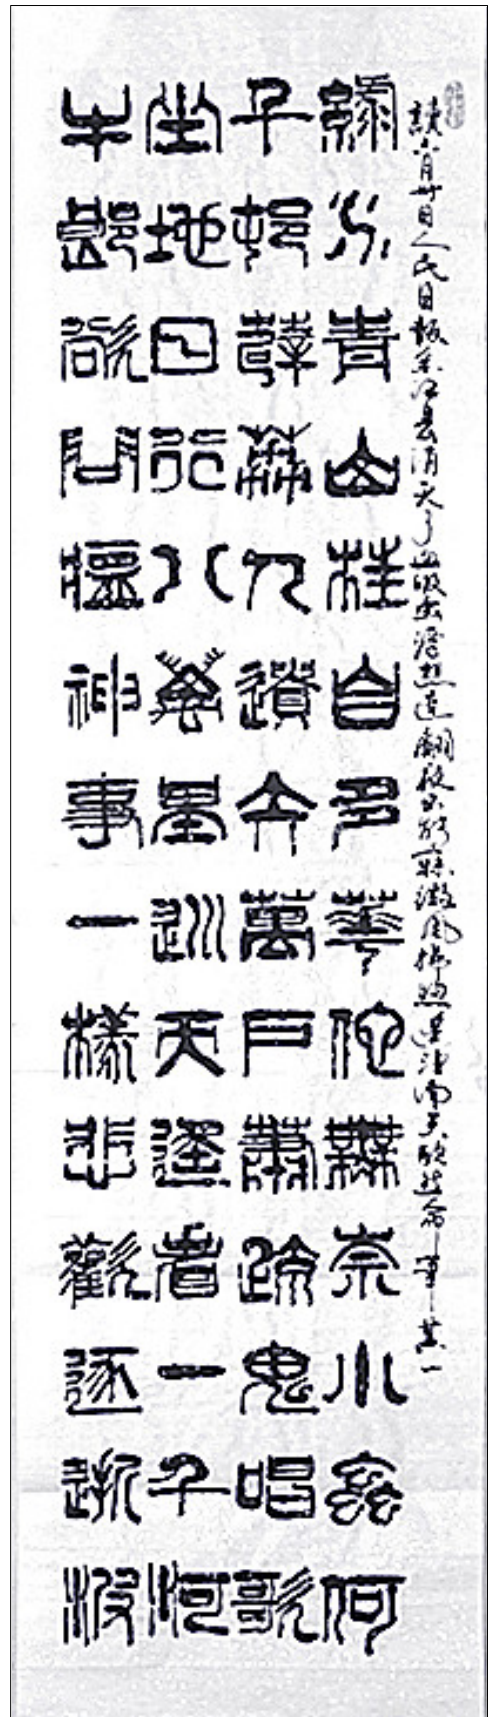 讀六月卅日人民日報余江县消灭了血吸虫浮想連翩夜不能寐微風拂煦遙望南天欣然命筆 其一
綠水青山枉自多華佗無奈小蟲何
千村薜荔人遺矢萬戶蕭疏鬼唱歌
坐地日行八萬里巡天遙看一千河
牛郎欲問瘟神事一樣悲歡逐逝波